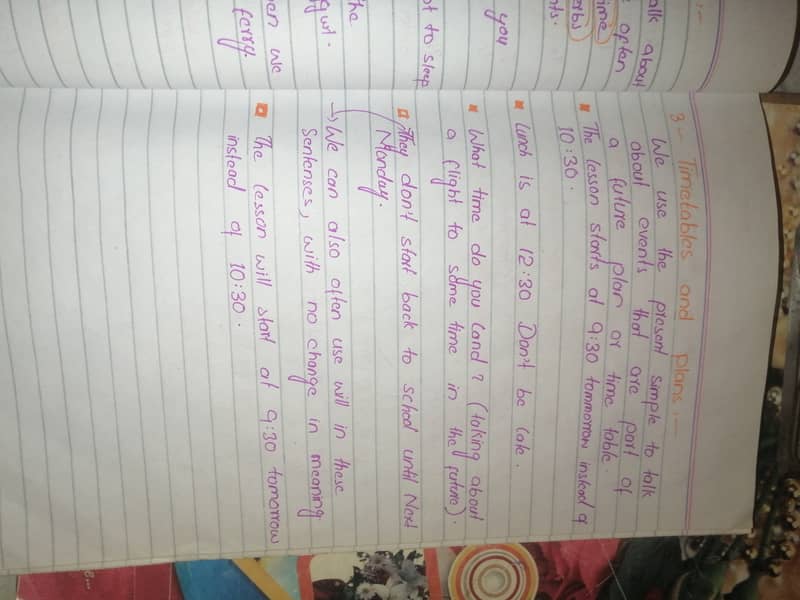 alk about
often
time
erbs
ts.
you
ot to sleep
the
en we
ferry
3- Timetables and plans :-
We use the present simple to talk
about events that are part of
a future plan or time table.
The lesson starts at 9:30 tommorrow instead of
10:30.
Lunch is at 12:30 Don't be late.
What time do you land? (talking about
a flight to some time in the future).
They don't start back to school until Next
Monday.
→ We can also often use will in these
Sentenses, with no change in meaning
The lesson will start at 9:30 tomorrow
instead of 10:30.